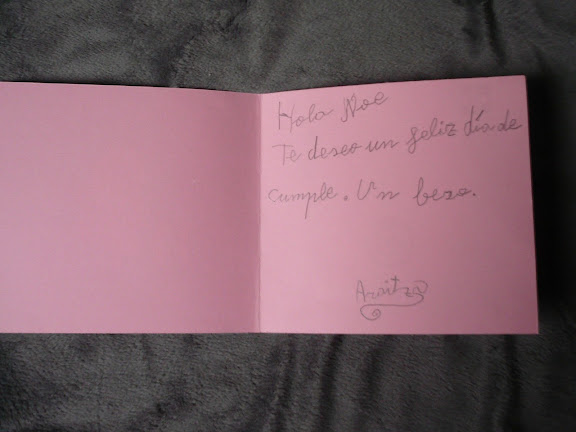 Hola Noe
Te deseo un feliz día de
cumple. Un beso.
Araitz